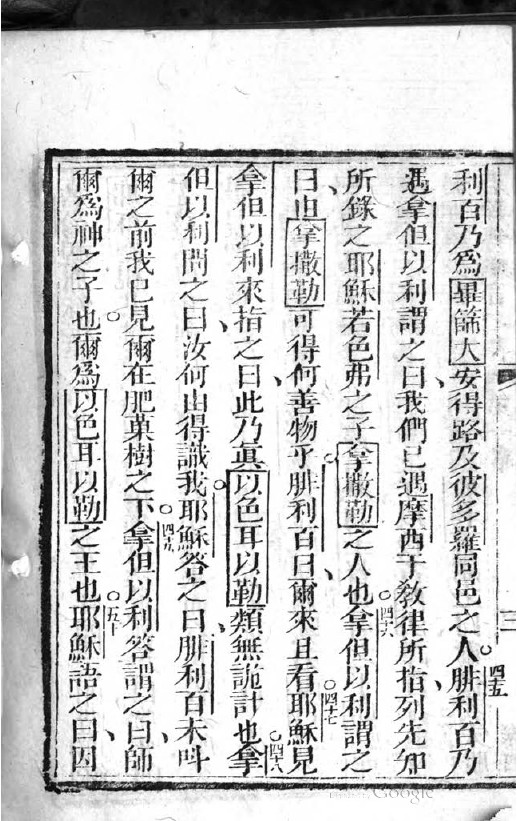 利百乃為畢篩大安得路及彼多羅同邑之人腓利百乃
遇拿但以利謂之曰我們已遇摩西于教律所指列先知
所錄之耶穌若色弗之子拿撒勒之人也拿但以利謂之
曰由拿撒勒可得何善物乎腓利百曰爾來且看耶穌見
拿但以利來指之曰此乃眞以色耳以勒類無詭計也拿
但以利問之曰汝何由得識我耶穌答之曰腓利百未呌
爾之前我已見爾在肥菓樹之下拿但以利答謂之曰師
爾為神之子也爾為以色耳以勒之王也耶穌語之曰因
四五
四六
四七
四八
四九
五十
三
Google